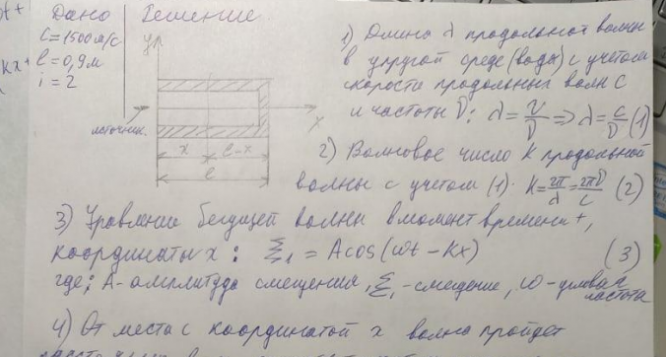 Дано
Решение
C=1500 м/с
ℓ=0,9 м
i=2
y
источник
x
x
ℓ-x
ℓ
1) Длина λ продольной волны
в упругой среде (воды) с учетом
скорости продольных волн C
и частоты ν: λ = v/ν => λ = c/ν (1)
2) Волновое число K продольной
волны с учетом (1): K = 2π/λ = 2πν/c (2)
3) Уравнение бегущей волны в момент времени t,
координаты x: ξ₁ = A cos(ωt - Kx) (3)
где: A - амплитуда смещения, ξ₁ - смещение, ω - цикловая
частота
4) От места с координатой x волна пройдет